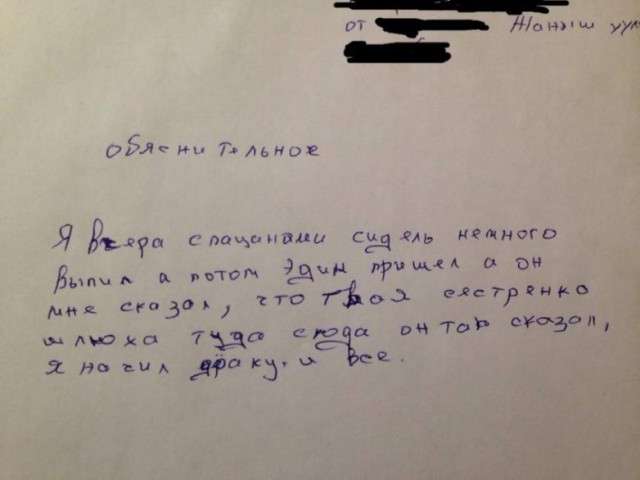 от Жаныш уул
обяснительное
Я вчера спацанами сидель немного
выпил а потом Эдик пришел а он
мне сказал, что твоя сестренка
шлюха туда сюда он так сказал,
я начил драку. и все.